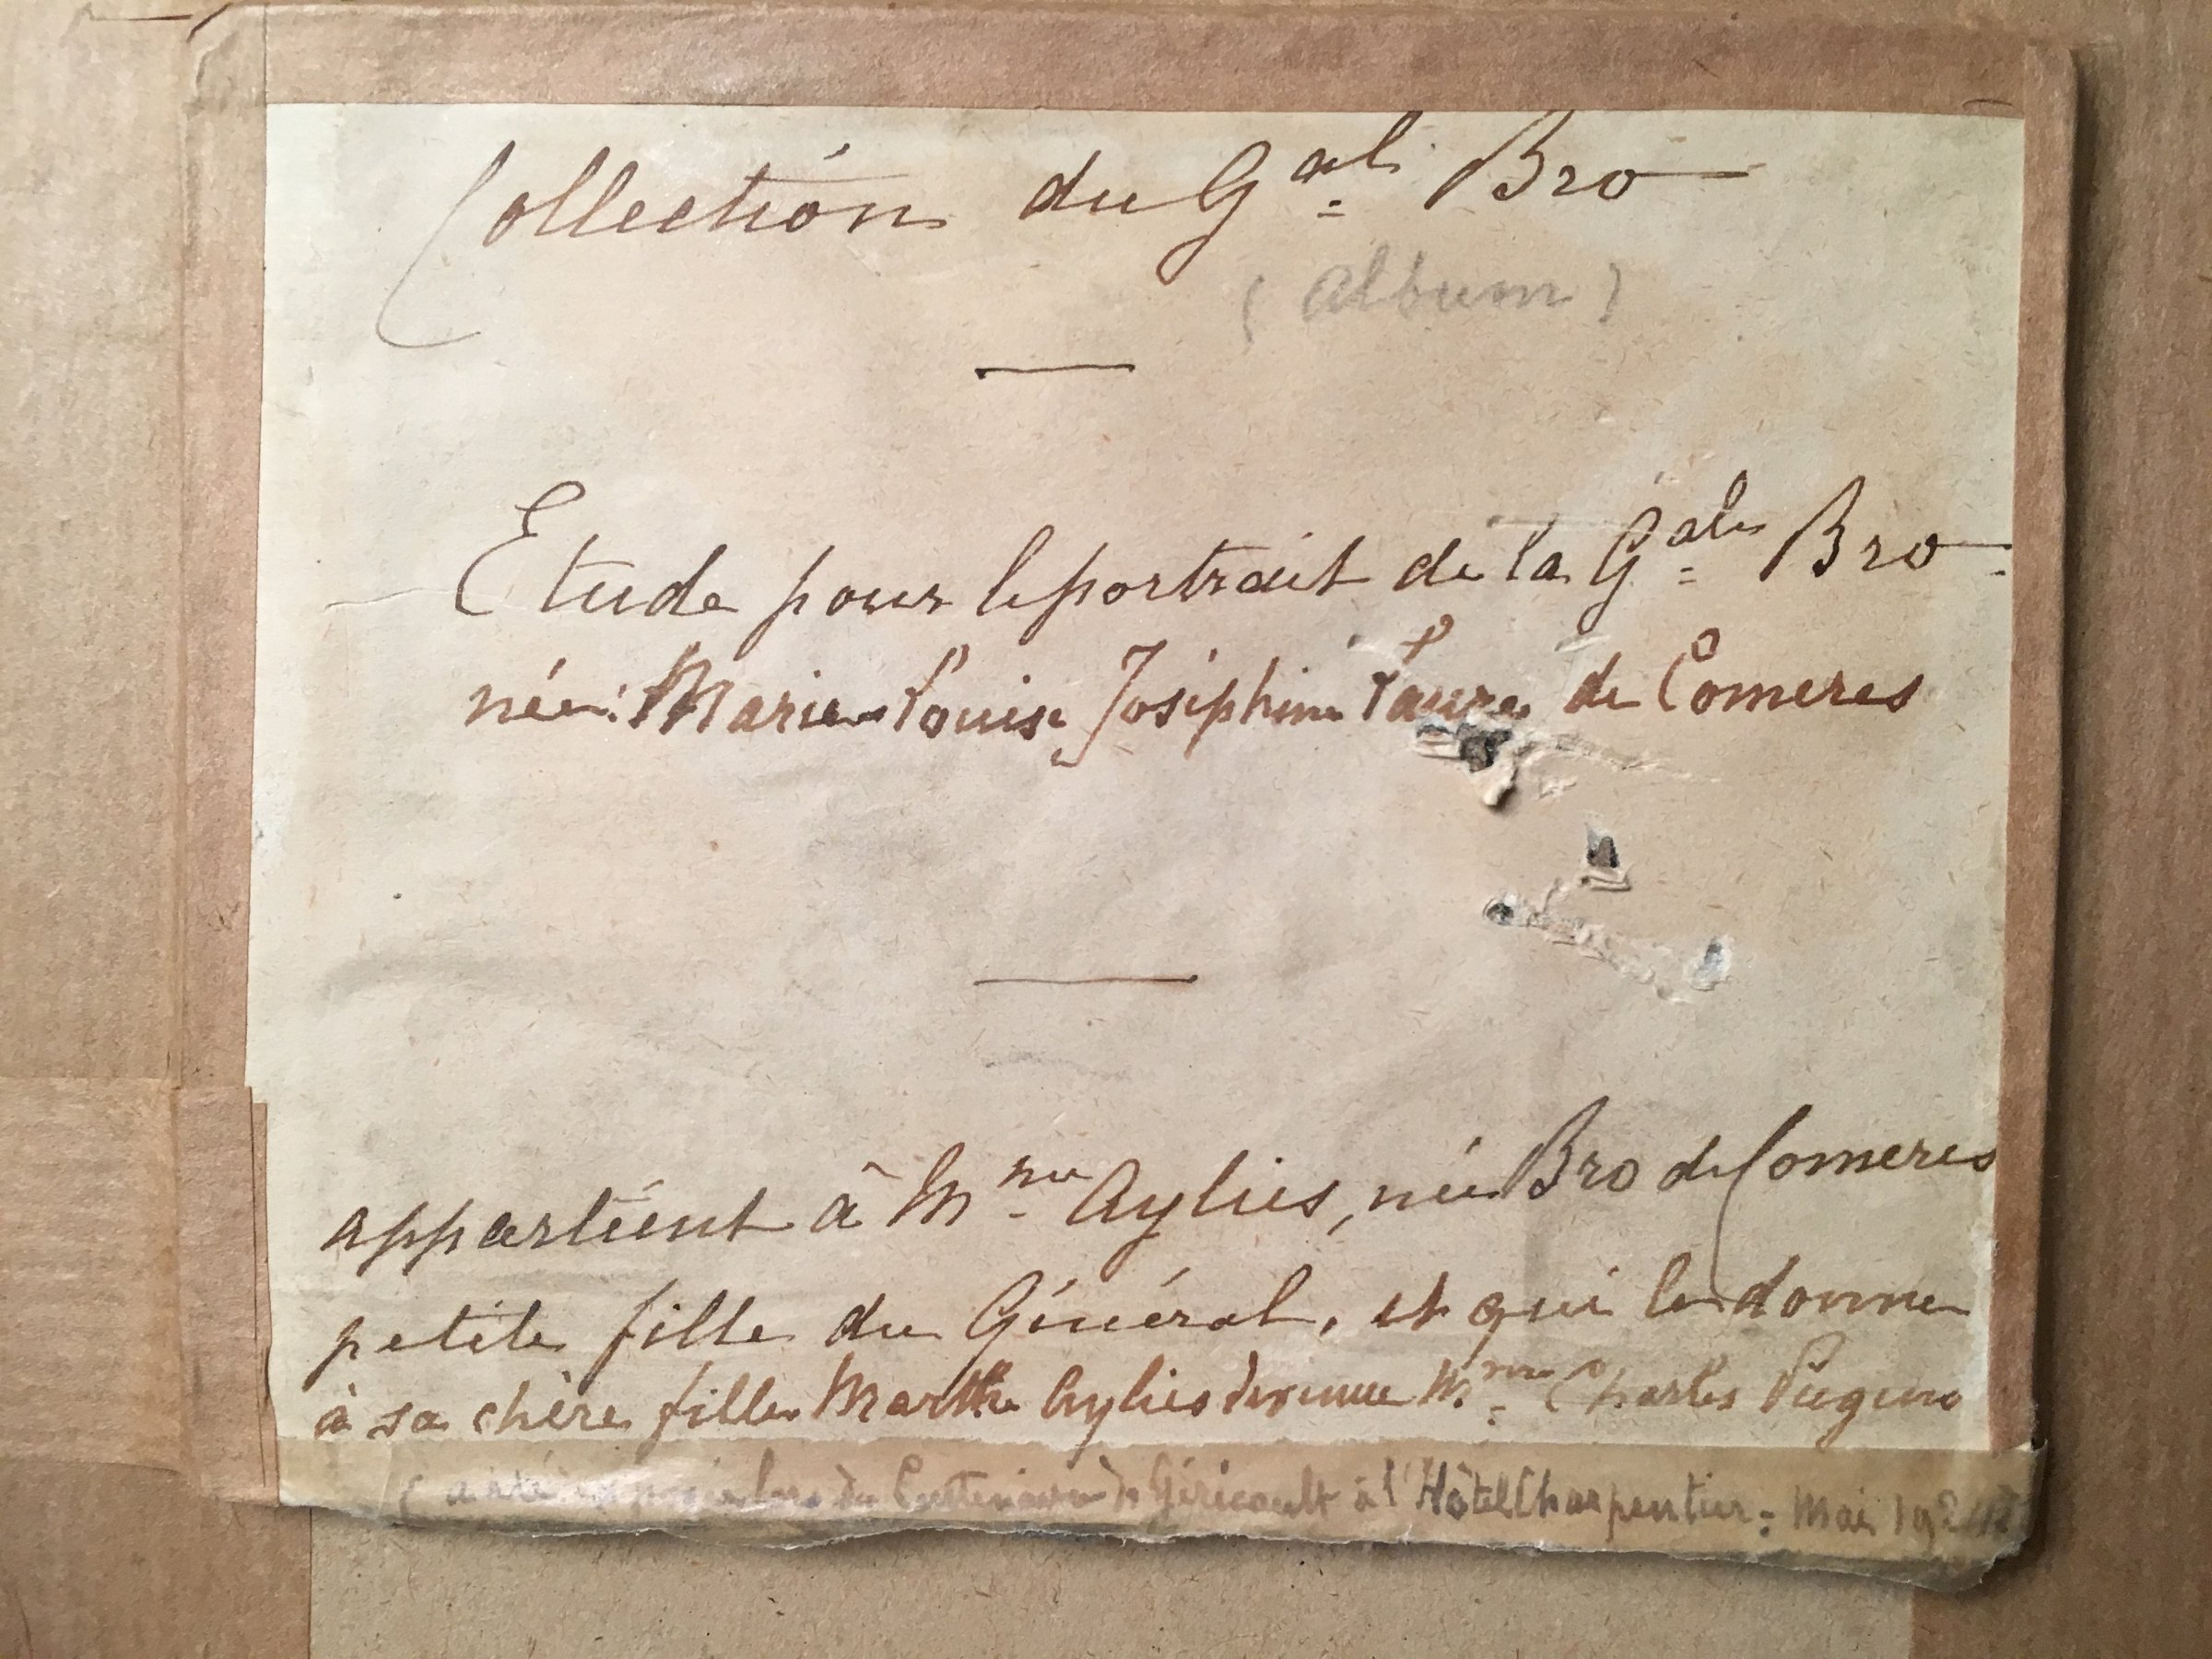 Collection du Gal Bro
(album)
Etude pour le portrait de la Gale Bro
née: Marie Louise Joséphine Laure de Comeres
appartient à Mme Aylies, née Bro de Comeres
petite fille du Général, et qui le donne
à sa chère fille Marthe Aylies devenue Mme Charles
(a été exposé lors du Centenaire de Géricault à l'Hôtel Charpentier = Mai